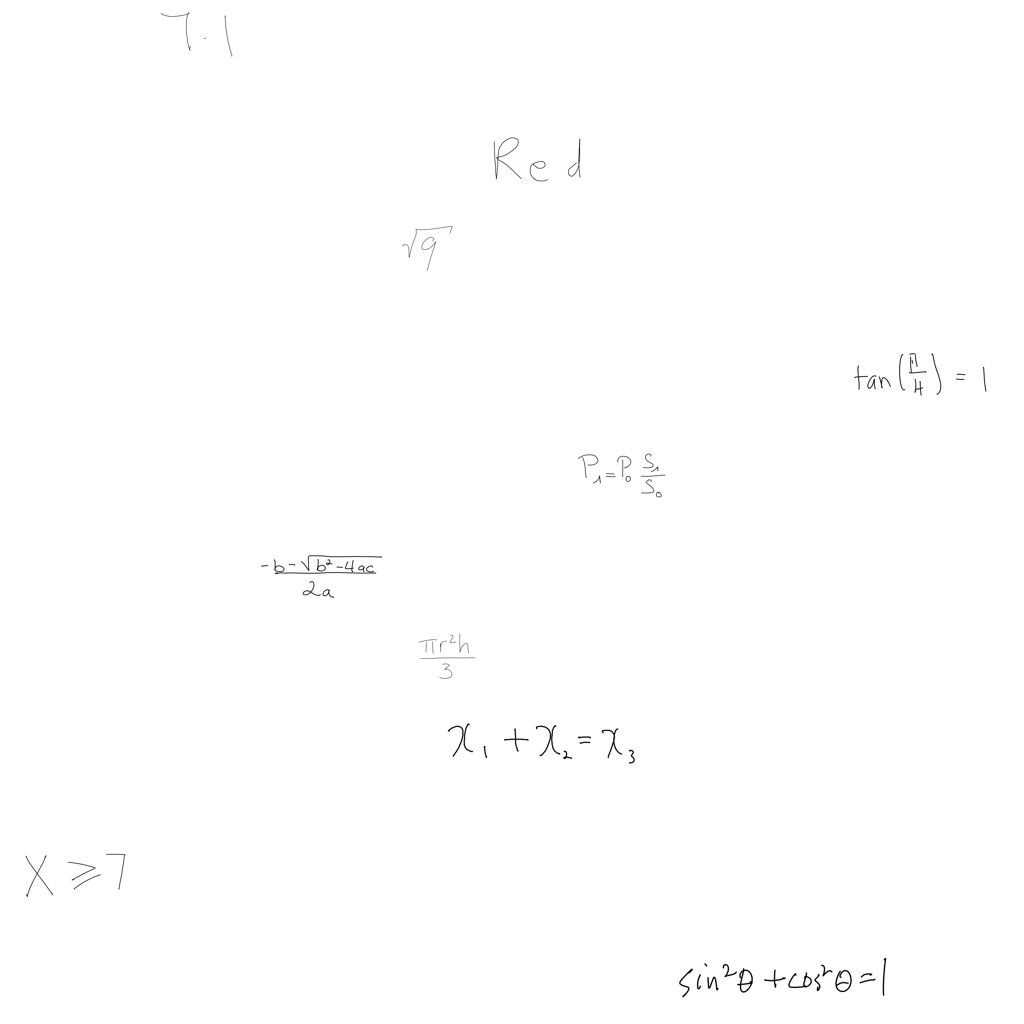 7.1
Red
√9
tan(π/4) = 1
P₁=P₀ S₁/S₀
(-b-√(b²-4ac))/(2a)
πr²h/3
x₁ + x₂ = x₃
X ≥ 7
sin²θ + cos²θ = 1